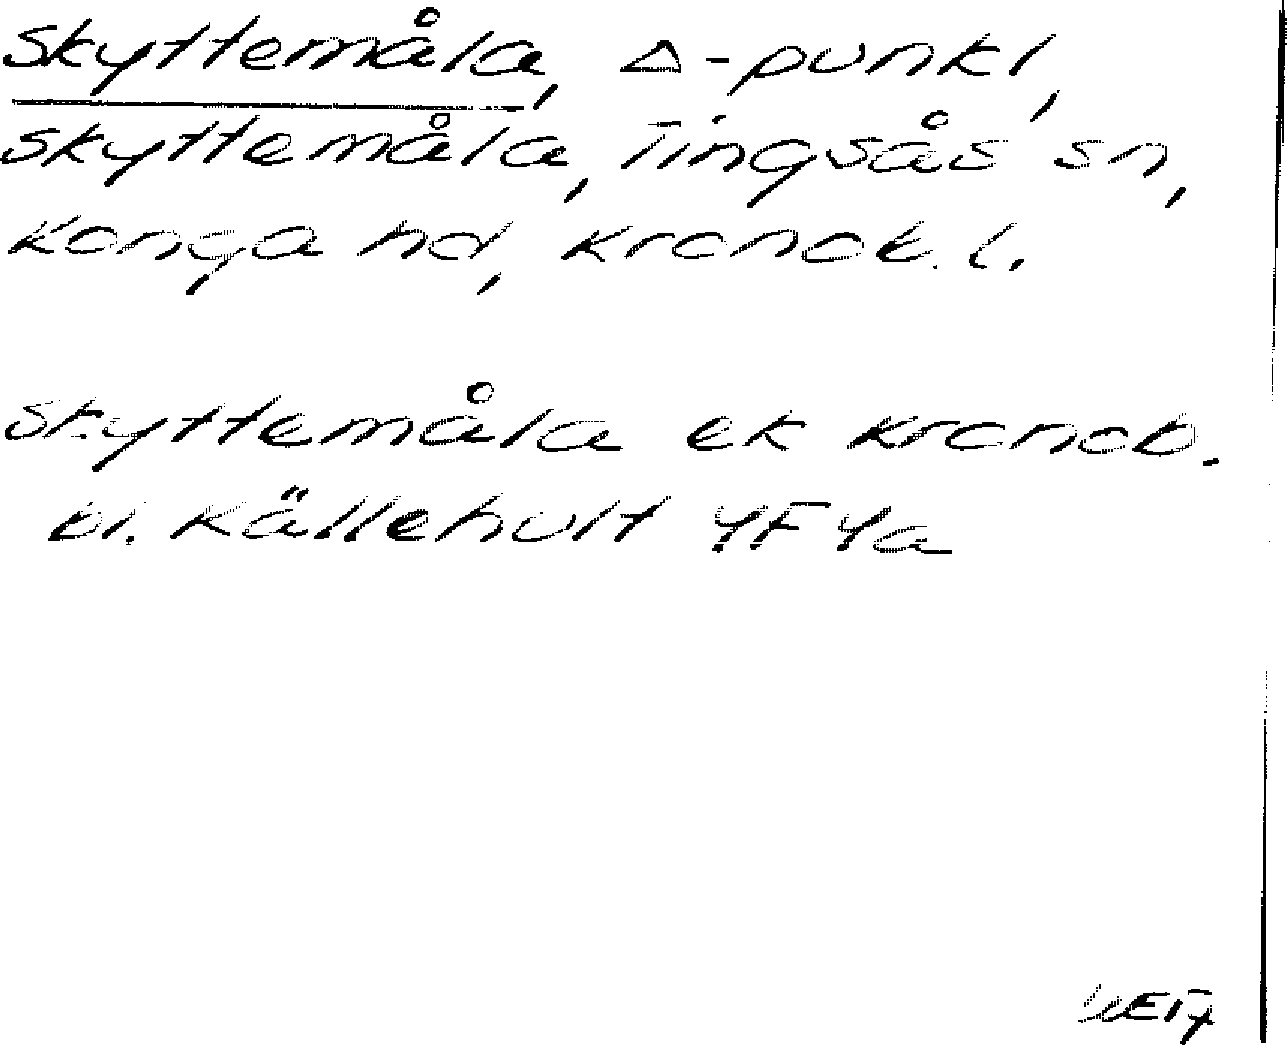 Skyttemåla, Δ-punkt,
Skyttemåla, Tingsås sn,
Konga hd, Kronob. l.
Skyttemåla ek Kronob.
bl. Källehult 4F 4a